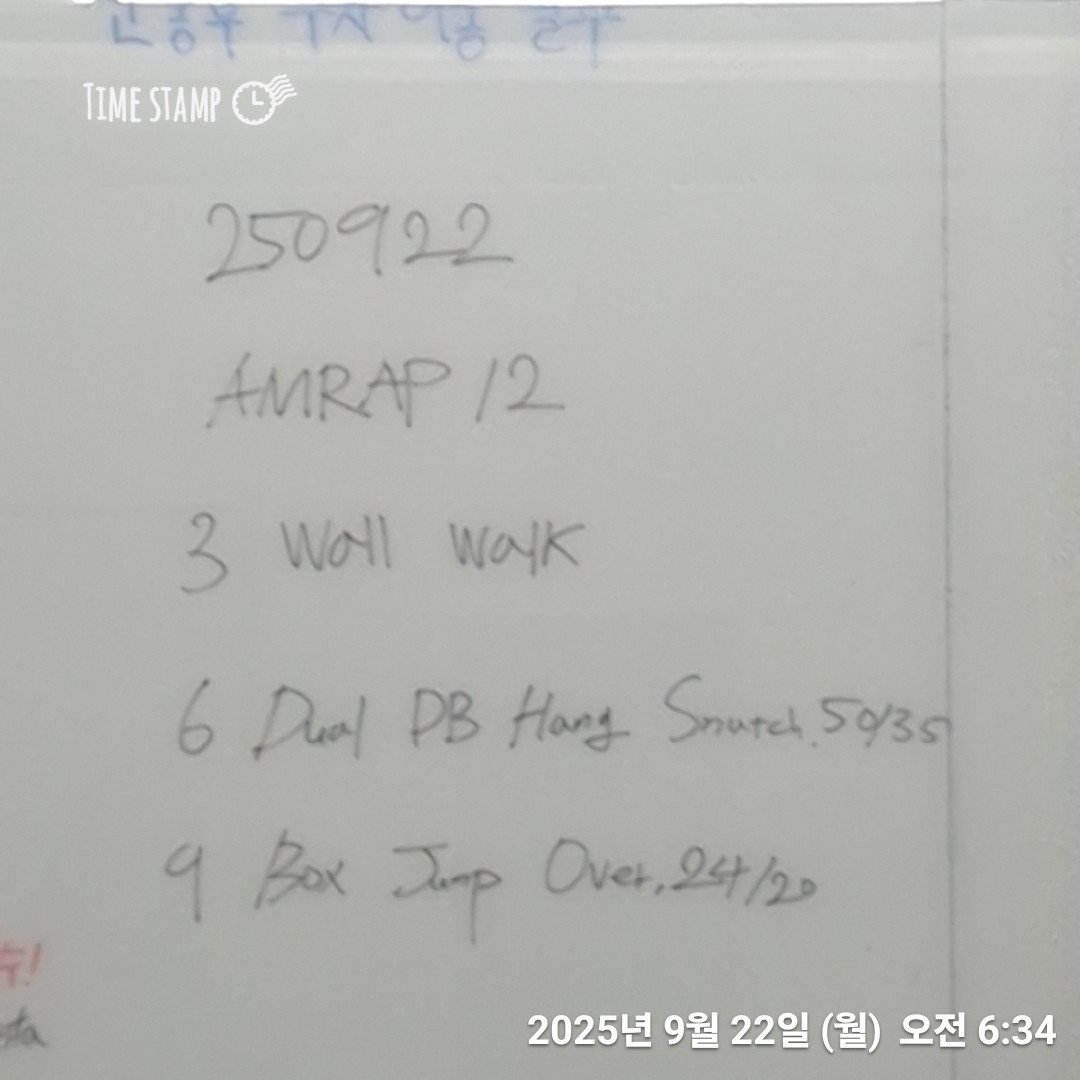 TIME STAMP
250922
AMRAP 12
3 Wall Walk
6 Dual DB Hang Snatch. 50/35
9 Box Jump Over. 24/20
2025년 9월 22일 (월) 오전 6:34